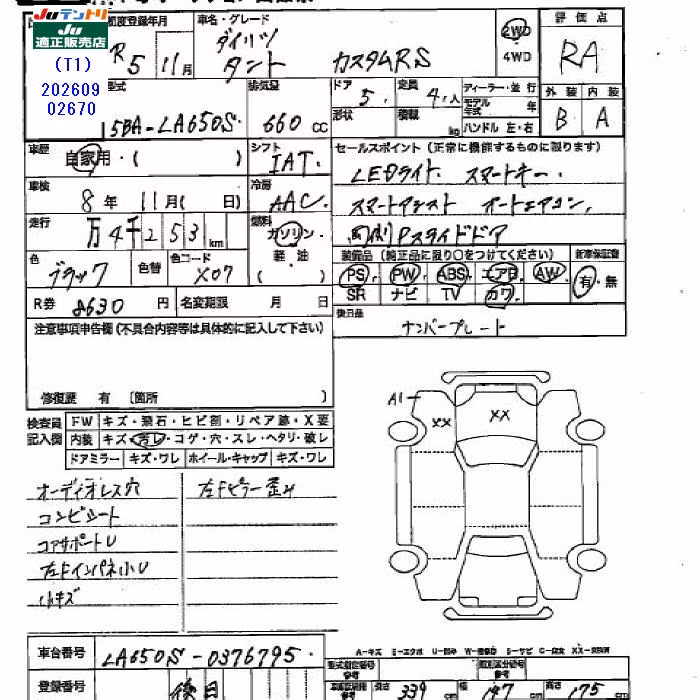 Juテントリ
Ju
適正販売店
(T1)
202609
02670
初度登録年月
R5 11月
車名・グレード
ダイハツ
タント カスタムRS
2WD
4WD
評価点
RA
外装 内装
B A
型式
5BA-LA650S
排気量
660 CC
ドア
5
定員
4人
形状
積載
kg
ディーラー・並行
モデル年式 年
ハンドル 左・右
車歴
自家用・( )
シフト
IAT
車検
8年11月( 日)
冷房
AAC
走行
万4千253km
燃料
ガソリン・
軽・油
( )
色
ブラック
色替
色コード
X07
R券 8630円
名変期限 月 日
セールスポイント(正常に機能するものに限ります)
LEDライト、スマートキー、
スマートアシスト オートエアコン、
両側Pスライドドア
装備品(純正品に限り○をつけてください)
新車保証書
PS PW ABS エアB AW
有・無
SR ナビ TV カワ
後日品
ナンバープレート
注意事項申告欄(不具合内容等は具体的に記入して下さい)
修復歴 有 〔箇所 〕
検査員
記入欄
FW キズ・飛石・ヒビ割・リペア跡・X要
内装 キズ・汚レ・コゲ・穴・スレ・ヘタリ・破レ
ドアミラー キズ・ワレ ホイール・キャップ キズ・ワレ
オーディオレス穴
左Fピラー歪み
コンビシート
コアサポートU
左FインパネホU
小キズ
A1
XX
XX
A-キズ E-エクボ U-凹み W-補修跡 S-サビ C-腐食 XX-交換済
車台番号 LA650S-0376795
登録番号 後日
型式指定番号
参考
類別区分番号
参考
長さ 339
幅 147
高さ 175